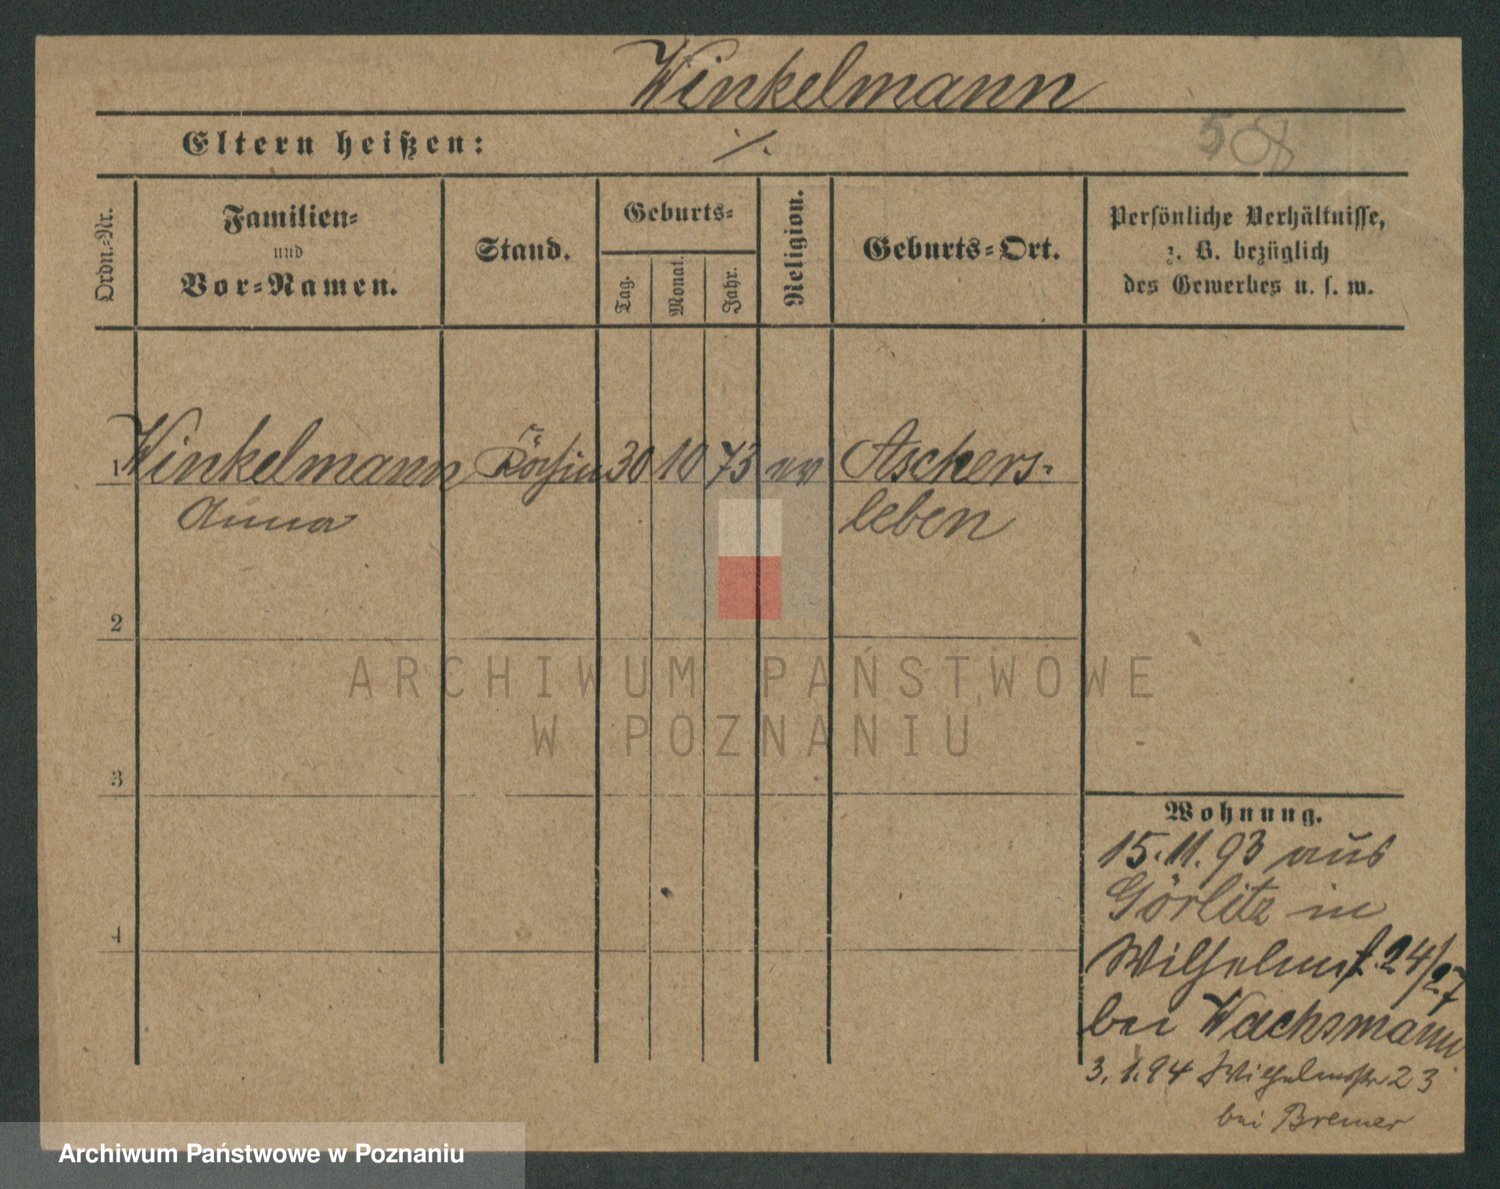 Winkelmann
Eltern heißen: ./.
508
Ordn.-Nr.
Familien-
und
Vor-Namen.
Stand.
Geburts-
Tag.
Monat.
Jahr.
Religion.
Geburts-Ort.
Persönliche Verhältnisse,
z. B. bezüglich
des Gewerbes u. s. w.
1 Winkelmann Köchin 30 10 73 ev Aschers-
Anna leben
2
3
4
ARCHIWUM PAŃSTWOWE
W POZNANIU
Wohnung.
15.11.93 aus
Görlitz in
Wilhelmst. 24/27
bei Wachsmann
3.1.94 Wilhelmstr 23
bei Bremer
Archiwum Państwowe w Poznaniu